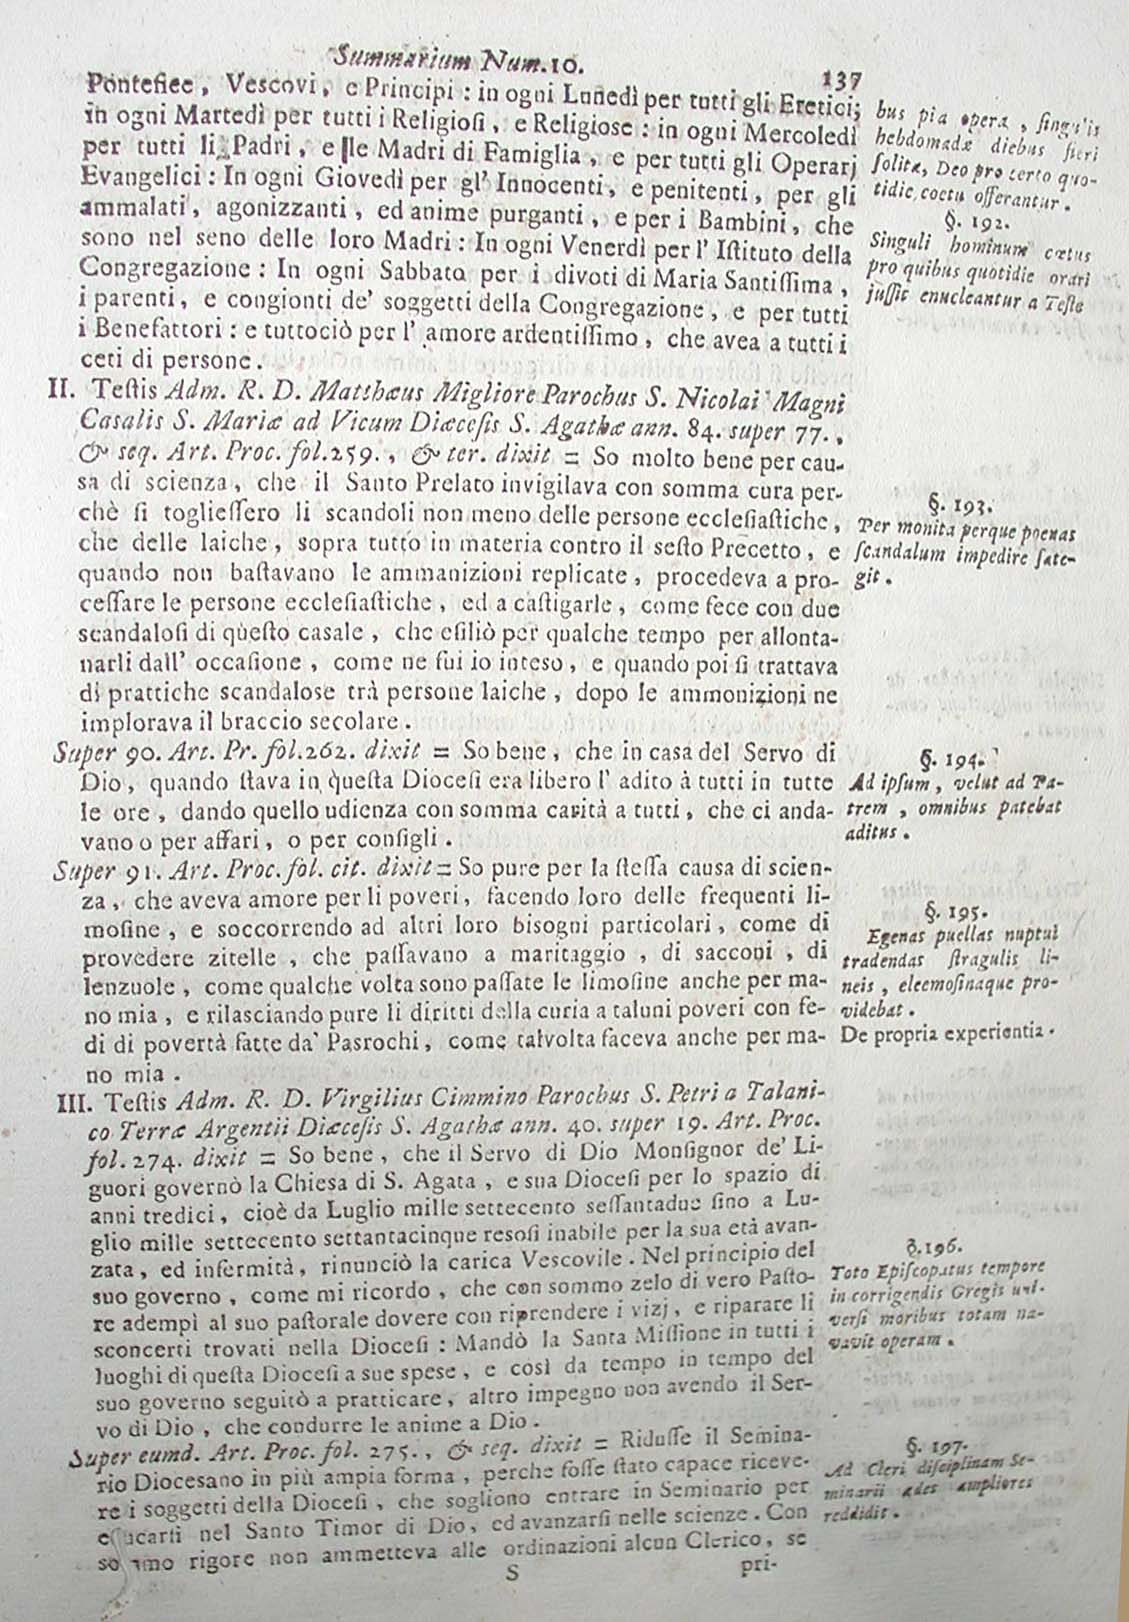 Summarium Num. 10.
137
Pontefice, Vescovi, e Principi: in ogni Lunedì per tutti gli Eretici;
in ogni Martedì per tutti i Religioſi, e Religiose: in ogni Mercoledì
per tutti li Padri, e lle Madri di Famiglia, e per tutti gli Operarj
Evangelici: In ogni Giovedì per gl' Innocenti, e penitenti, per gli
ammalati, agonizzanti, ed anime purganti, e per i Bambini, che
sono nel seno delle loro Madri: In ogni Venerdì per l' Iſtituto della
Congregazione: In ogni Sabbato per i divoti di Maria Santiſſima,
i parenti, e congionti de' soggetti della Congregazione, e per tutti
i Benefattori: e tuttociò per l' amore ardentiſſimo, che avea a tutti i
ceti di persone.
bus pia opera, ſingulis
hebdomadæ diebus fieri
ſolita, Deo pro certo quo-
tidie, coetu offerantur.
§. 192.
Singuli hominum cœtus
pro quibus quotidie orari
juſſit enucleantur a Teſte
II. Teſtis Adm. R. D. Matthæus Migliore Parochus S. Nicolai Magni
Casalis S. Mariæ ad Vicum Diæceſis S. Agathæ ann. 84. super 77.,
& seq. Art. Proc. fol. 259., & ter. dixit = So molto bene per cau-
sa di scienza, che il Santo Prelato invigilava con somma cura per-
chè ſi toglieſſero li scandoli non meno delle persone eccleſiaſtiche,
che delle laiche, sopra tutto in materia contro il seſto Precetto, e
quando non baſtavano le ammanizioni replicate, procedeva a pro-
ceſſare le persone eccleſiaſtiche, ed a caſtigarle, come fece con due
scandaloſi di queſto casale, che eſiliò per qualche tempo per allonta-
narli dall' occaſione, come ne fui io inteso, e quando poi ſi trattava
di prattiche scandalose trà persone laiche, dopo le ammonizioni ne
implorava il braccio secolare.
§. 193.
Per monita perque poenas
ſcandalum impedire ſate-
git.
Super 90. Art. Pr. fol. 262. dixit = So bene, che in casa del Servo di
Dio, quando ſtava in queſta Dioceſi era libero l' adito à tutti in tutte
le ore, dando quello udienza con somma carità a tutti, che ci anda-
vano o per affari, o per conſigli.
§. 194.
Ad ipſum, velut ad Pa-
trem, omnibus patebat
aditus.
Super 91. Art. Proc. fol. cit. dixit = So pure per la ſteſſa causa di scien-
za, che aveva amore per li poveri, facendo loro delle frequenti li-
moſine, e soccorrendo ad altri loro bisogni particolari, come di
provedere zitelle, che paſſavano a maritaggio, di sacconi, di
lenzuole, come qualche volta sono paſſate le limoſine anche per ma-
no mia, e rilasciando pure li diritti della curia a taluni poveri con fe-
di di povertà fatte da' Pasrochi, come talvolta faceva anche per ma-
no mia.
§. 195.
Egenas puellas nuptui
tradendas ſtragulis li-
neis, eleemoſinaque pro-
videbat.
De propria experientia.
III. Teſtis Adm. R. D. Virgilius Cimmino Parochus S. Petri a Talani-
co Terræ Argentii Diæceſis S. Agathæ ann. 40. super 19. Art. Proc.
fol. 274. dixit = So bene, che il Servo di Dio Monſignor de' Li-
guori governò la Chiesa di S. Agata, e sua Dioceſi per lo spazio di
anni tredici, cioè da Luglio mille settecento seſſantadue ſino a Lu-
glio mille settecento settantacinque resoſi inabile per la sua età avan-
zata, ed infermità, rinunciò la carica Vescovile. Nel principio del
suo governo, come mi ricordo, che con sommo zelo di vero Paſto-
re adempì al suo paſtorale dovere con riprendere i vizj, e riparare li
sconcerti trovati nella Dioceſi: Mandò la Santa Miſſione in tutti i
luoghi di queſta Dioceſi a sue spese, e così da tempo in tempo del
suo governo seguitò a pratticare, altro impegno non avendo il Ser-
vo di Dio, che condurre le anime a Dio.
§. 196.
Toto Epiſcopatus tempore
in corrigendis Gregis uni-
verſi moribus totam na-
vavit operam.
Super eumd. Art. Proc. fol. 275., & seq. dixit = Riduſſe il Semina-
rio Diocesano in più ampia forma, perche foſſe ſtato capace riceve-
re i soggetti della Dioceſi, che sogliono entrare in Seminario per
educarſi nel Santo Timor di Dio, ed avanzarſi nelle scienze. Con
sommo rigore non ammetteva alle ordinazioni alcun Clerico, se
§. 197.
Ad Cleri diſciplinam Se-
minarii ædes ampliores
reddidit.
S
pri-